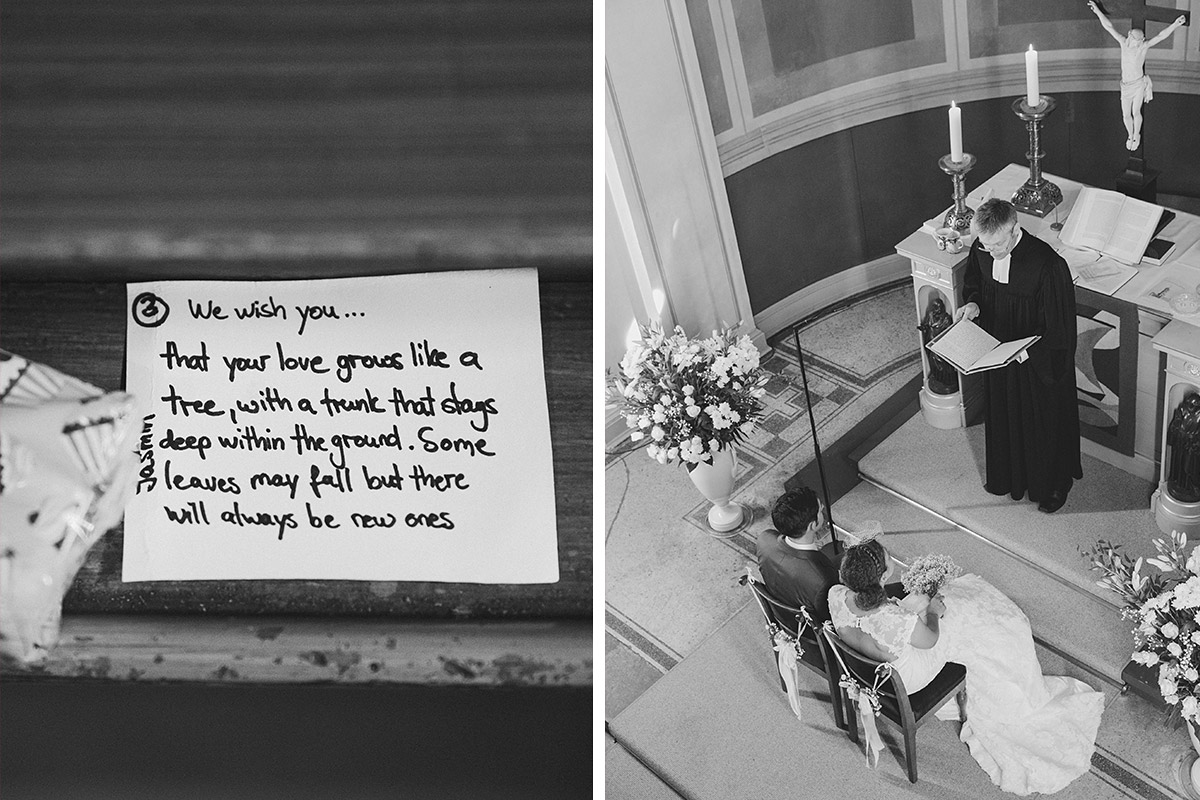 ③ We wish you...
that your love grows like a
tree, with a trunk that stays
deep within the ground. Some
leaves may fall but there
will always be new ones
Jasmin